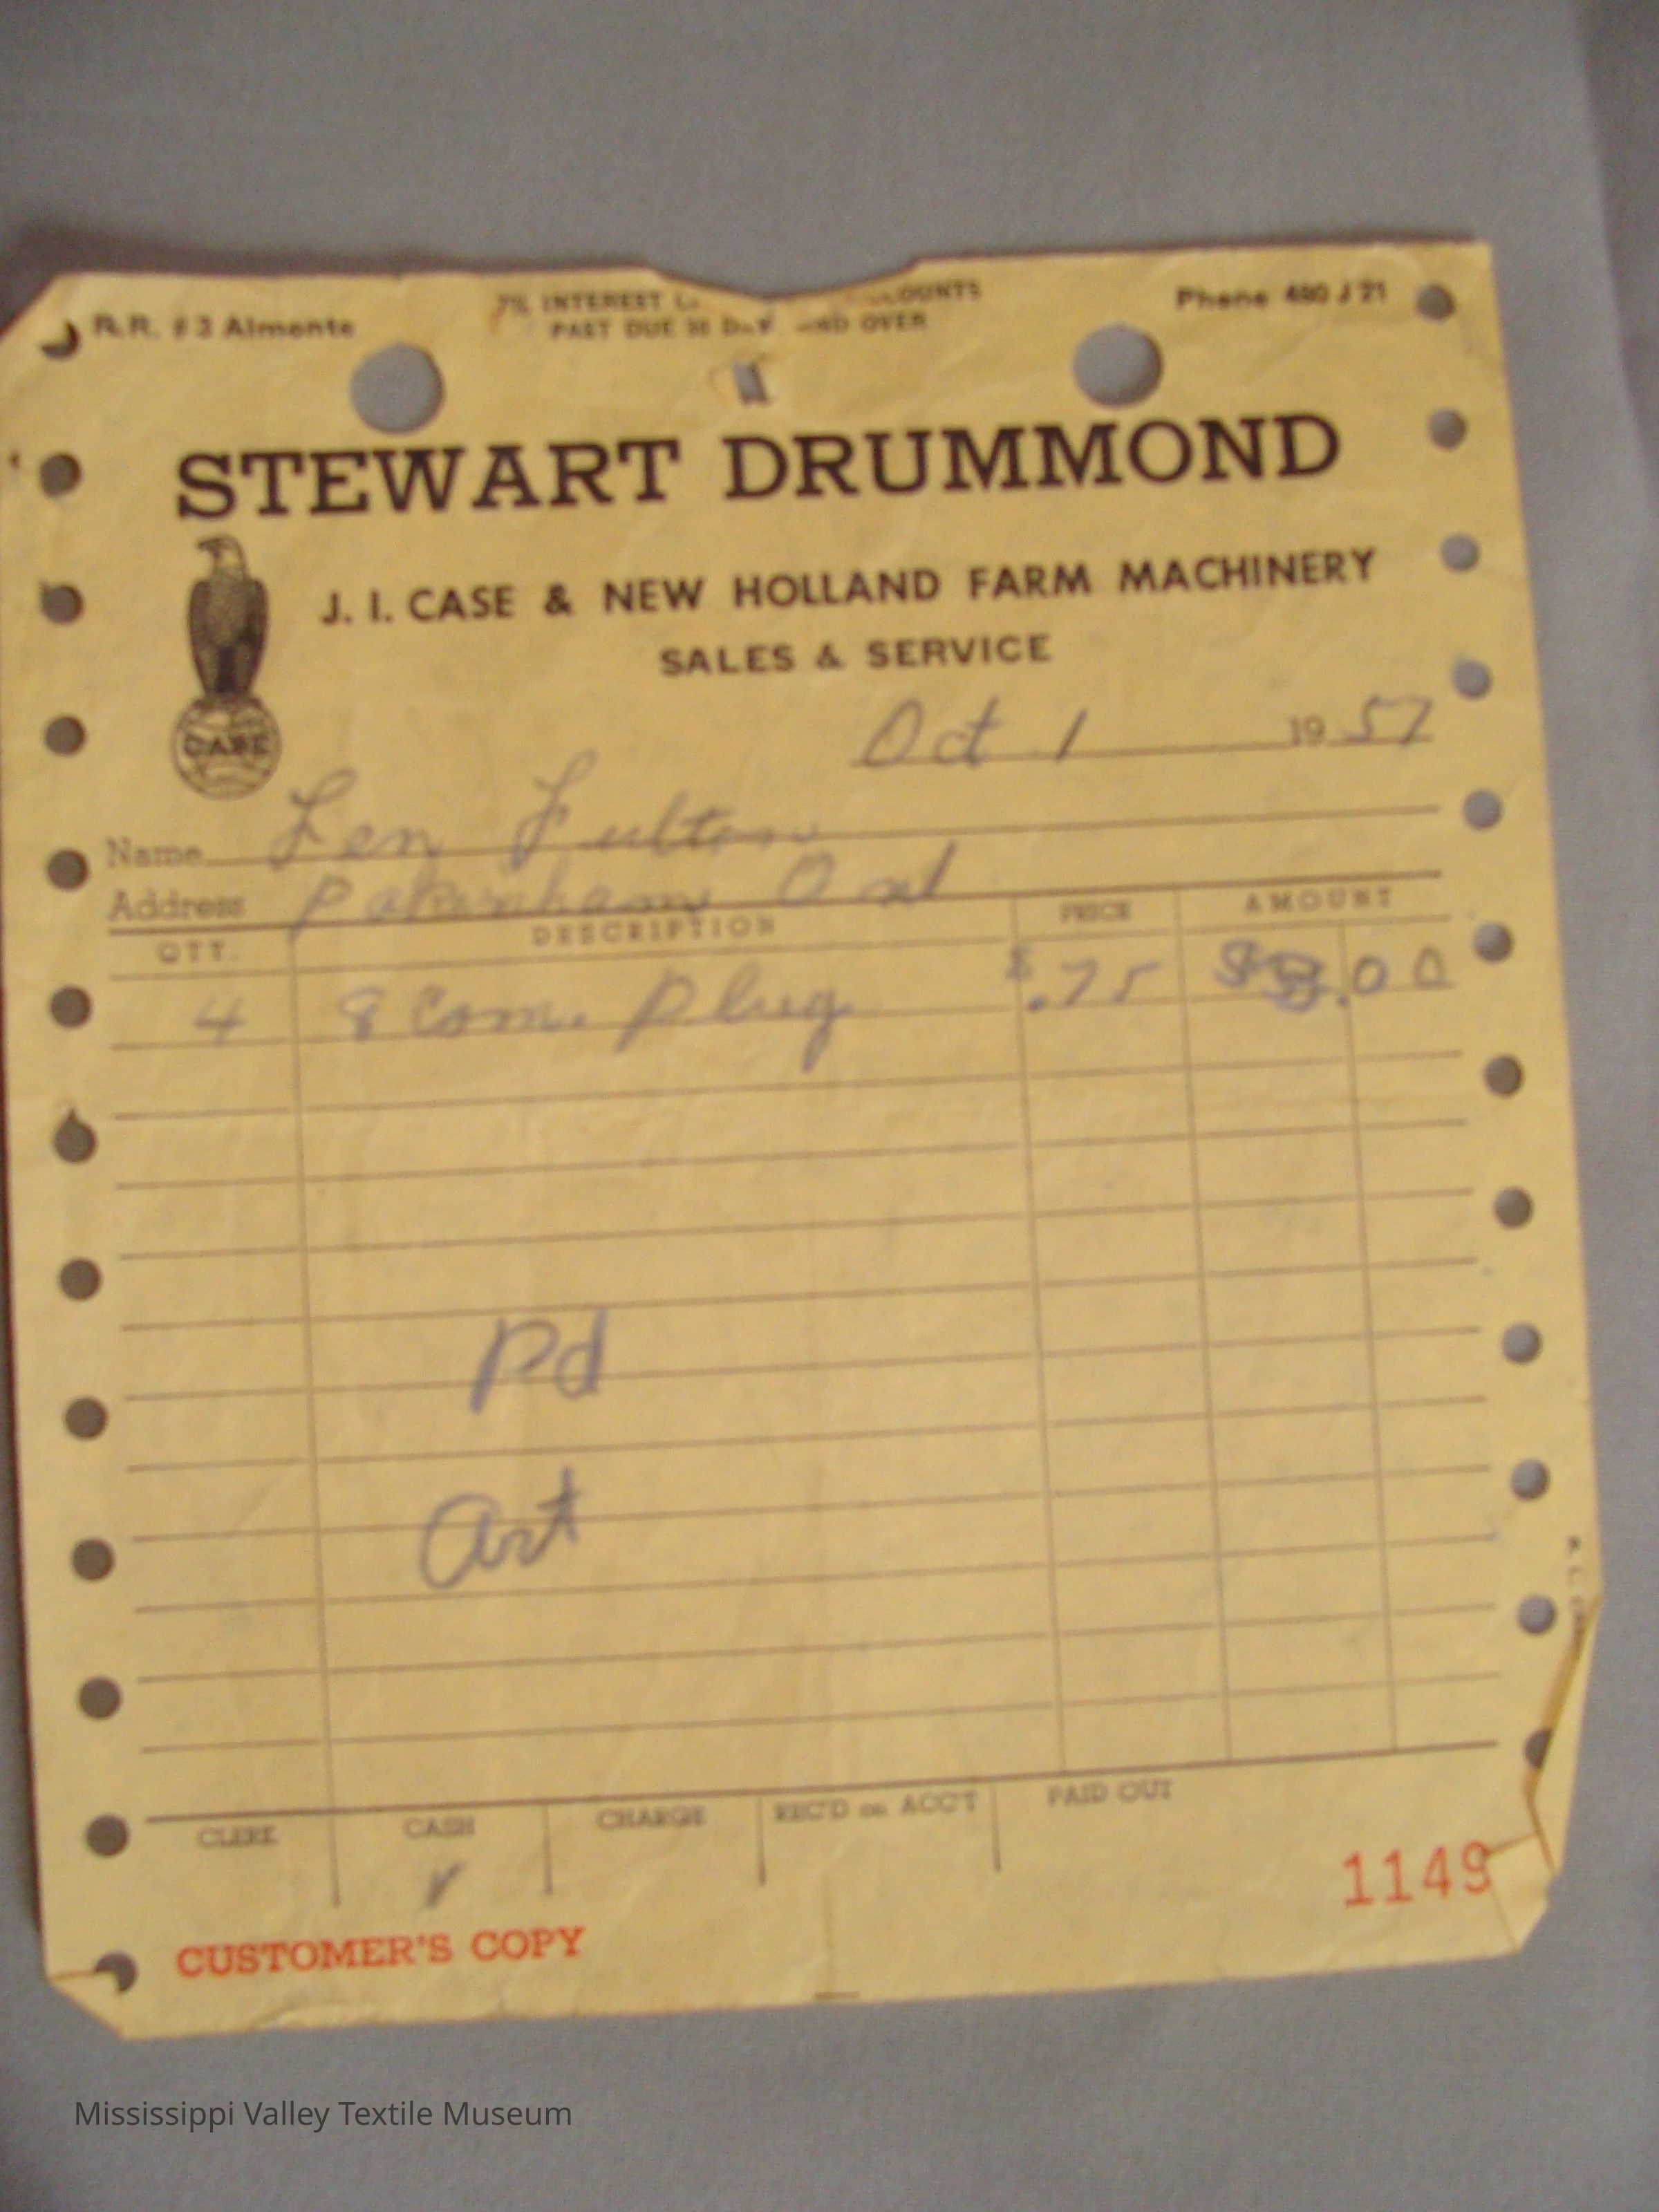 R.R. #3 Almonte
7% INTEREST COUNTS
PAST DUE 30 DAY AND OVER
Phone 480 J 21
STEWART DRUMMOND
J. I. CASE & NEW HOLLAND FARM MACHINERY
SALES & SERVICE
CASE
Oct 1 19 57
Name Len Fulton
Address Pakenham Ont
QTY. DESCRIPTION PRICE AMOUNT
4 8 Com. Plug $.75 $3.00
Pd
Art
CLERK CASH CHARGE REC'D on ACC'T PAID OUT
✓
1149
CUSTOMER'S COPY
Mississippi Valley Textile Museum